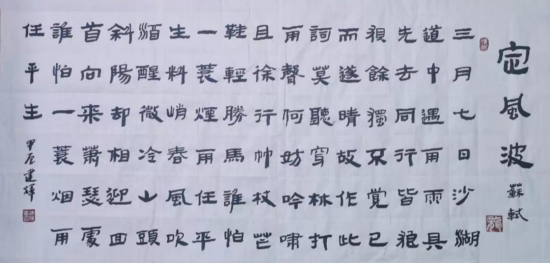 定風波
蘇軾
三月七日沙湖
道中遇雨雨具
先去同行皆狼
狽餘獨不覺已
而遂晴故作此
詞莫聽穿林打
雨聲何妨吟嘯
且徐行竹杖芒
鞋輕勝馬誰怕
一蓑煙雨任平
生料峭春風吹
酒醒微冷山頭
斜陽却相迎回
首向来蕭瑟處
誰怕一蓑烟雨
任平生
甲辰建輝